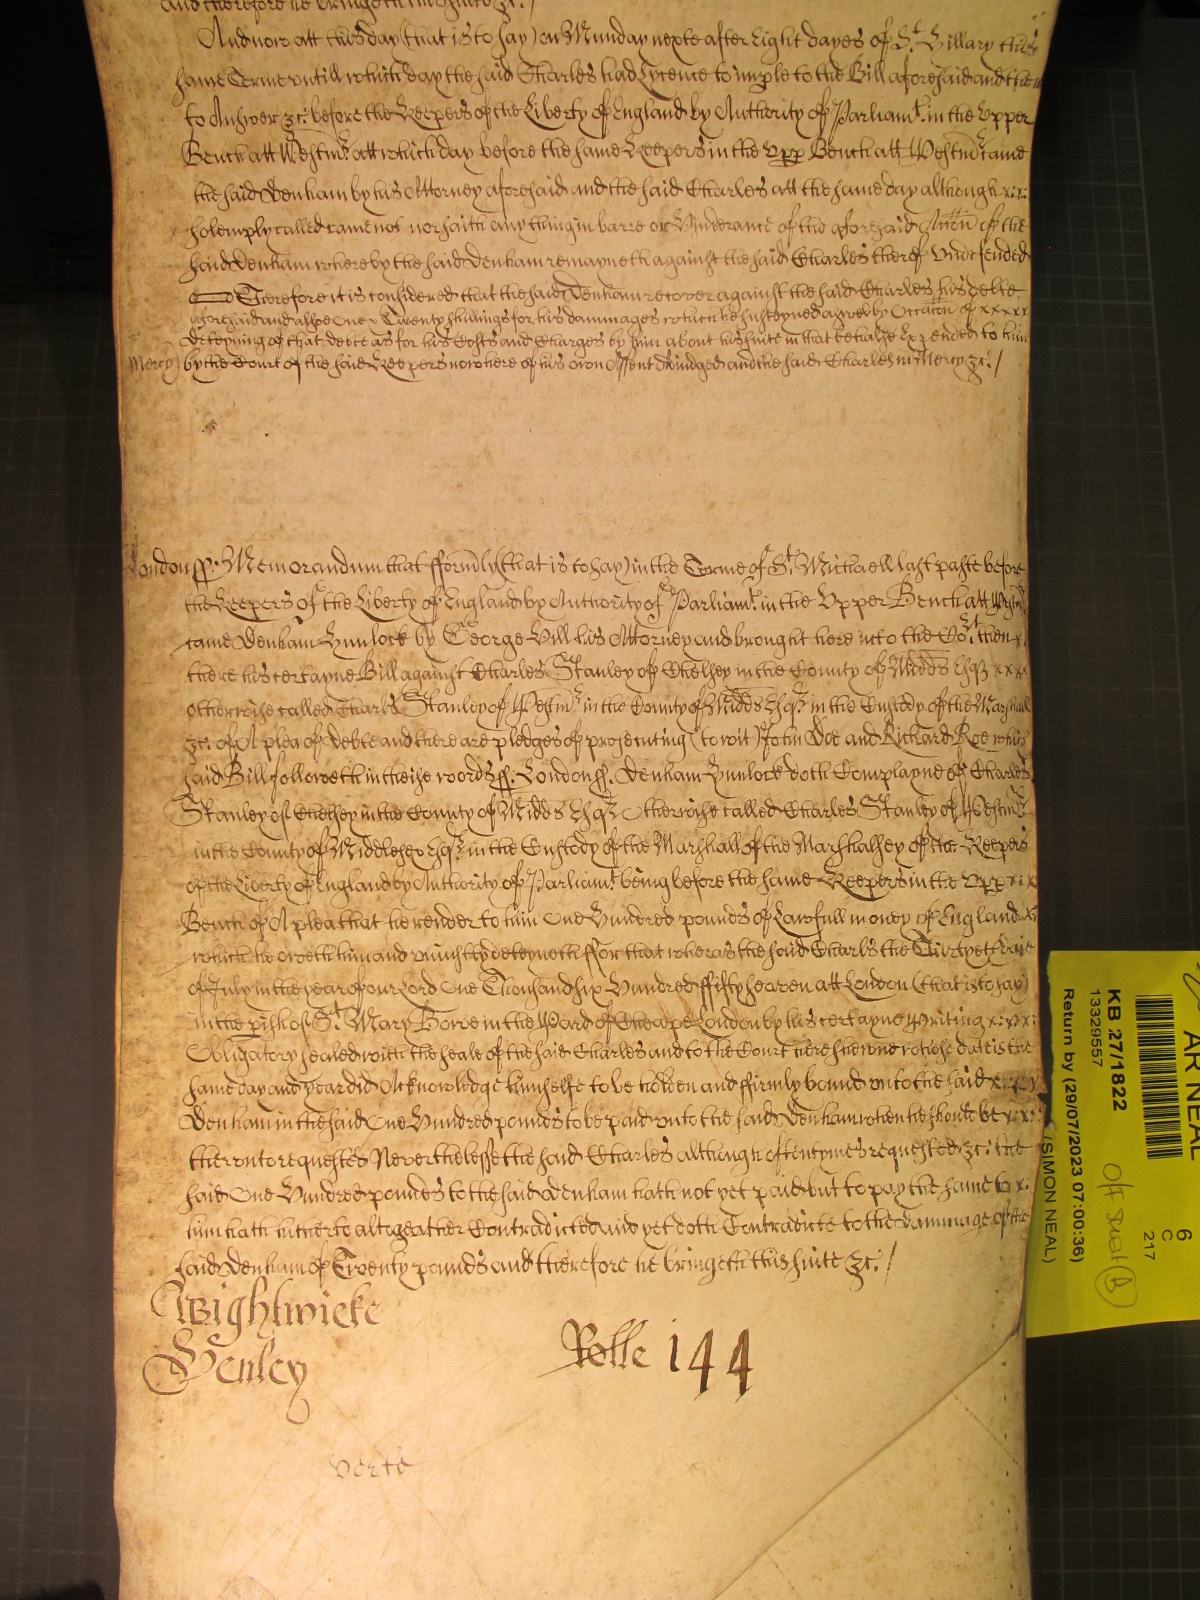 and therefore he bringeth this suite &c./
And now att this day (that is to say) on Munday nexte after Eight dayes of St. Hillary this
same Terme untill which day the said Charles had Lycence to imple to the Bill aforesaid and then
to Answer &c. before the Keepers of the Liberty of England by Authority of Parliamt. in the Upper
Bench att Westmr. att which day before the same Keepers in the Upp Bench att Westmr came
the said Denham by his Attorney aforesaid and the said Charles att the same day although x:x:
solemply called came not nor saith any thing in barre or Hinderance of the aforesaid Accōn of the
said Denham whereby the said Denham remayneth against the said Charles therof Undefended
Therefore it is considered that the said Denham recover against the said Charles his debte
aforesaid and alsoe One x Twenty shillings for his dammages which he susteyned aswell by Occasion of xxxxx
Deteyning of that debte as for his Costs and Charges by him about his suite in that behalfe Expended to him
Mercy) by the Court of the said Keepers now here of his own Assent Adiudged and the said Charles in Mercy &c./
London ss. Memorandum that fformly (that is to say) in the Terme of St. Michaell last paste before
the Keepers of the Liberty of England by Authority of Parliamt. in the Upper Bench att Westmr.
came Denham Hunlock by George Hill his Attorney and brought here into the Cort. then x
there his certayne Bill against Charles Stanley of Chelsey in the County of Midds Esqr xxxx
otherwise called Charls Stanley of Westmr in the County of Midds Esqr. in the Custody of the Marshall
&c. of A plea of debte and there are pledges of prosecuting (to wit) John Doe and Richard Roe which
said Bill followeth in theise words ss. London ss. Denham Hunlock doth Complayne of Charles
Stanley of Chelsey in the County of Midds Esqr Otherwise called Charles Stanley of Westmr
in the County of Middlesex Esqr. in the Custody of the Marshall of the Marshalsey of the Keepers
of the Liberty of England by Authority of Parliamt. being before the same Keepers in the Upp x i x
Bench of A plea that he render to him One Hundred pounds of Lawfull money of England x
which he oweth him and uniustly deteyneth ffor that wheras the said Charls the Thirtyeth daie
of July in the year of our Lord One Thousand six Hundred ffifty seaven att London (that is to say)
in the pish of St. Mary Bowe in the Ward of Cheape London by his certayne Writing x:x:x:
Obligatory sealed with the seale of the said Charles and to the Court here shewne whose date is the
same day and year did Acknowledge himselfe to be holden and ffirmly bound unto the said x x x x
Denham in the said One Hundred pounds to be paid unto the said Denham when he should be x x x
therunto requested Neverthelesse the said Charles although oftentymes requested &c. the
said One Hundred pounds to the said Denham hath not yet paid but to pay the same to x.
him hath hitherto altogeather Contradicted and yet doth Contradicte to the dammage of the
said Denham of Twenty pounds and therefore he bringeth this suite &c./
Wightwicke
Henley
Rolle 144
verte
AR NEAL
KB 27/1822
13329557
Return by (29/07/2023 07:00:36)
(SIMON NEAL)
6
C
217
Off seal (B)